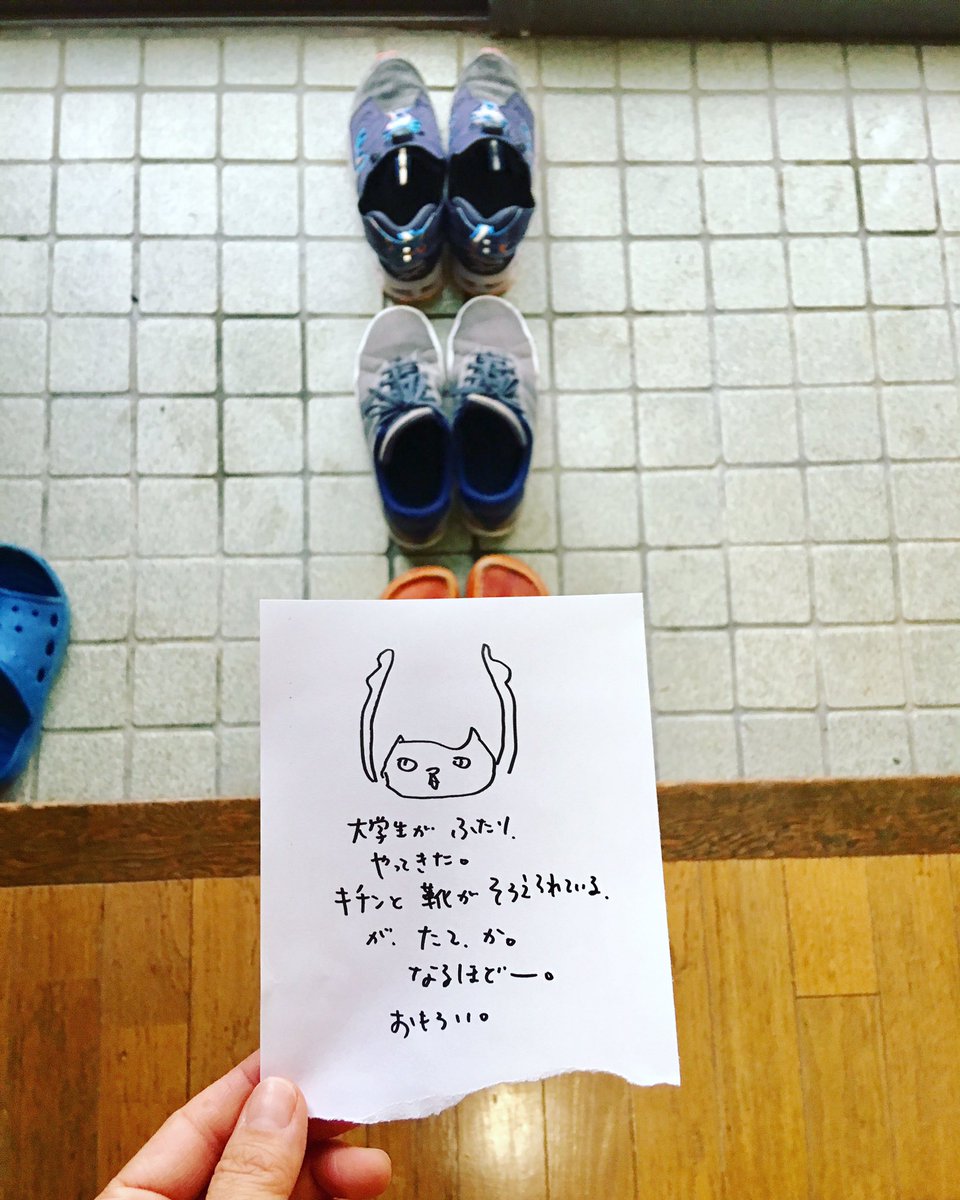 大学生が ふたり、
やってきた。
キチンと 靴が そろえられている、
が、たて、か。
なるほどー。
おもろい。